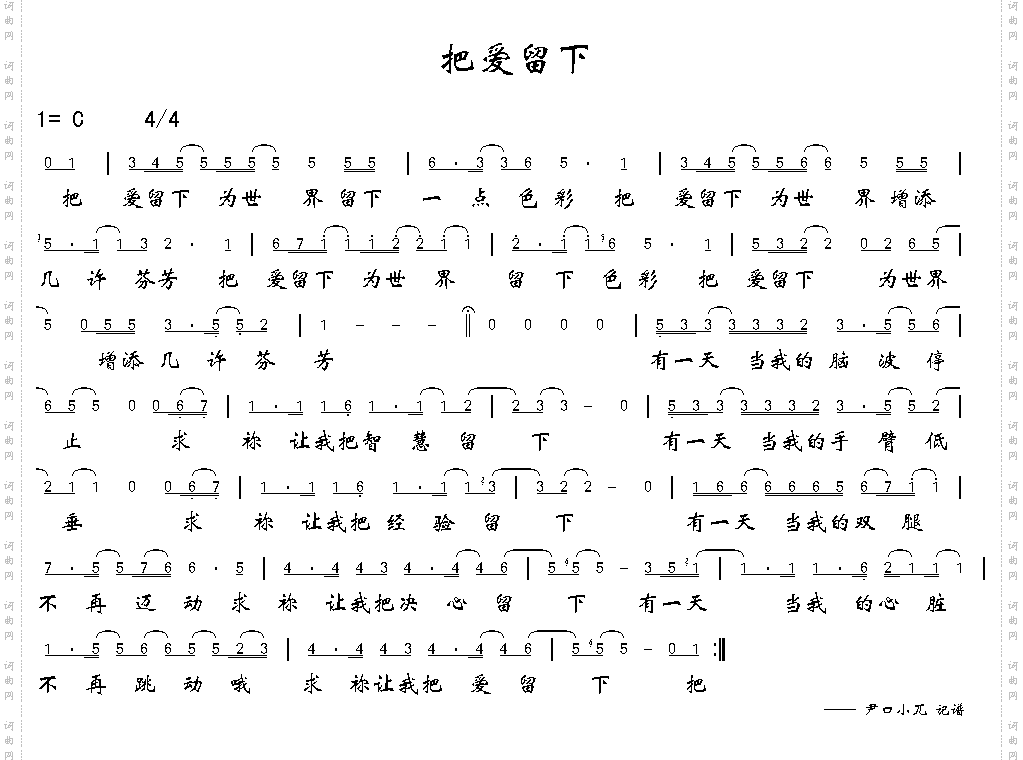 把爱留下
1= C 4/4
0 1 | 3 4 5 5 5 5 5 5 5 5 | 6 · 3 3 6 5 · 1 | 3 4 5 5 5 6 6 5 5 5 |
把 爱留下 为世 界 留下 一 点 色 彩 把 爱留下 为世 界 增添
5 · 1 1 3 2 · 1 | 6 7 1 1 1 2 2 1 1 | 2 · 1 1 6 5 · 1 | 5 3 2 2 0 2 6 5 |
几 许 芬芳 把 爱留下 为世 界 留 下 色彩 把 爱留下 为世界
5 0 5 5 3 · 5 5 2 | 1 - - - ‖ 0 0 0 0 | 5 3 3 3 3 3 2 3 · 5 5 6 |
增添 几 许 芬 芳 有一天 当我的 脑 波 停
6 5 5 0 0 6 7 | 1 · 1 1 6 1 · 1 1 2 | 2 3 3 - 0 | 5 3 3 3 3 3 2 3 · 5 5 2 |
止 求 祢 让我把智 慧 留 下 有一天 当我的手 臂 低
2 1 1 0 0 6 7 | 1 · 1 1 6 1 · 1 1 3 | 3 2 2 - 0 | 1 6 6 6 6 6 5 6 7 1 1 |
垂 求 祢 让我把 经 验 留 下 有一天 当我的双 腿
7 · 5 5 7 6 6 · 5 | 4 · 4 4 3 4 · 4 4 6 | 5 5 5 - 3 5 1 | 1 · 1 1 · 6 2 1 1 1 |
不 再 迈 动 求 祢 让我把决 心 留 下 有一天 当我 的心 脏
1 · 5 5 6 6 5 5 2 3 | 4 · 4 4 3 4 · 4 4 6 | 5 5 5 - 0 1 :‖
不 再 跳 动 哦 求 祢让我把 爱 留 下 把
—— 尹口小兀 记谱
词曲网